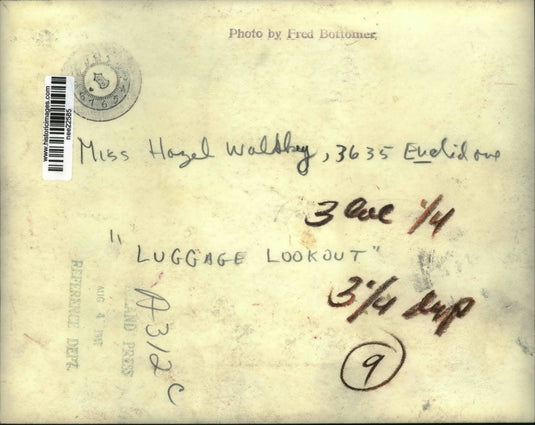 Photo by Fred Bottomer
www.historicimages.com
Miss Hazel
, 3635 Euclid ave
3 1/4
"LUGGAGE LOOKOUT"
3 1/4 deep
9
A312C
AND PRESS
AUG 4
REFERENCE DEPT.